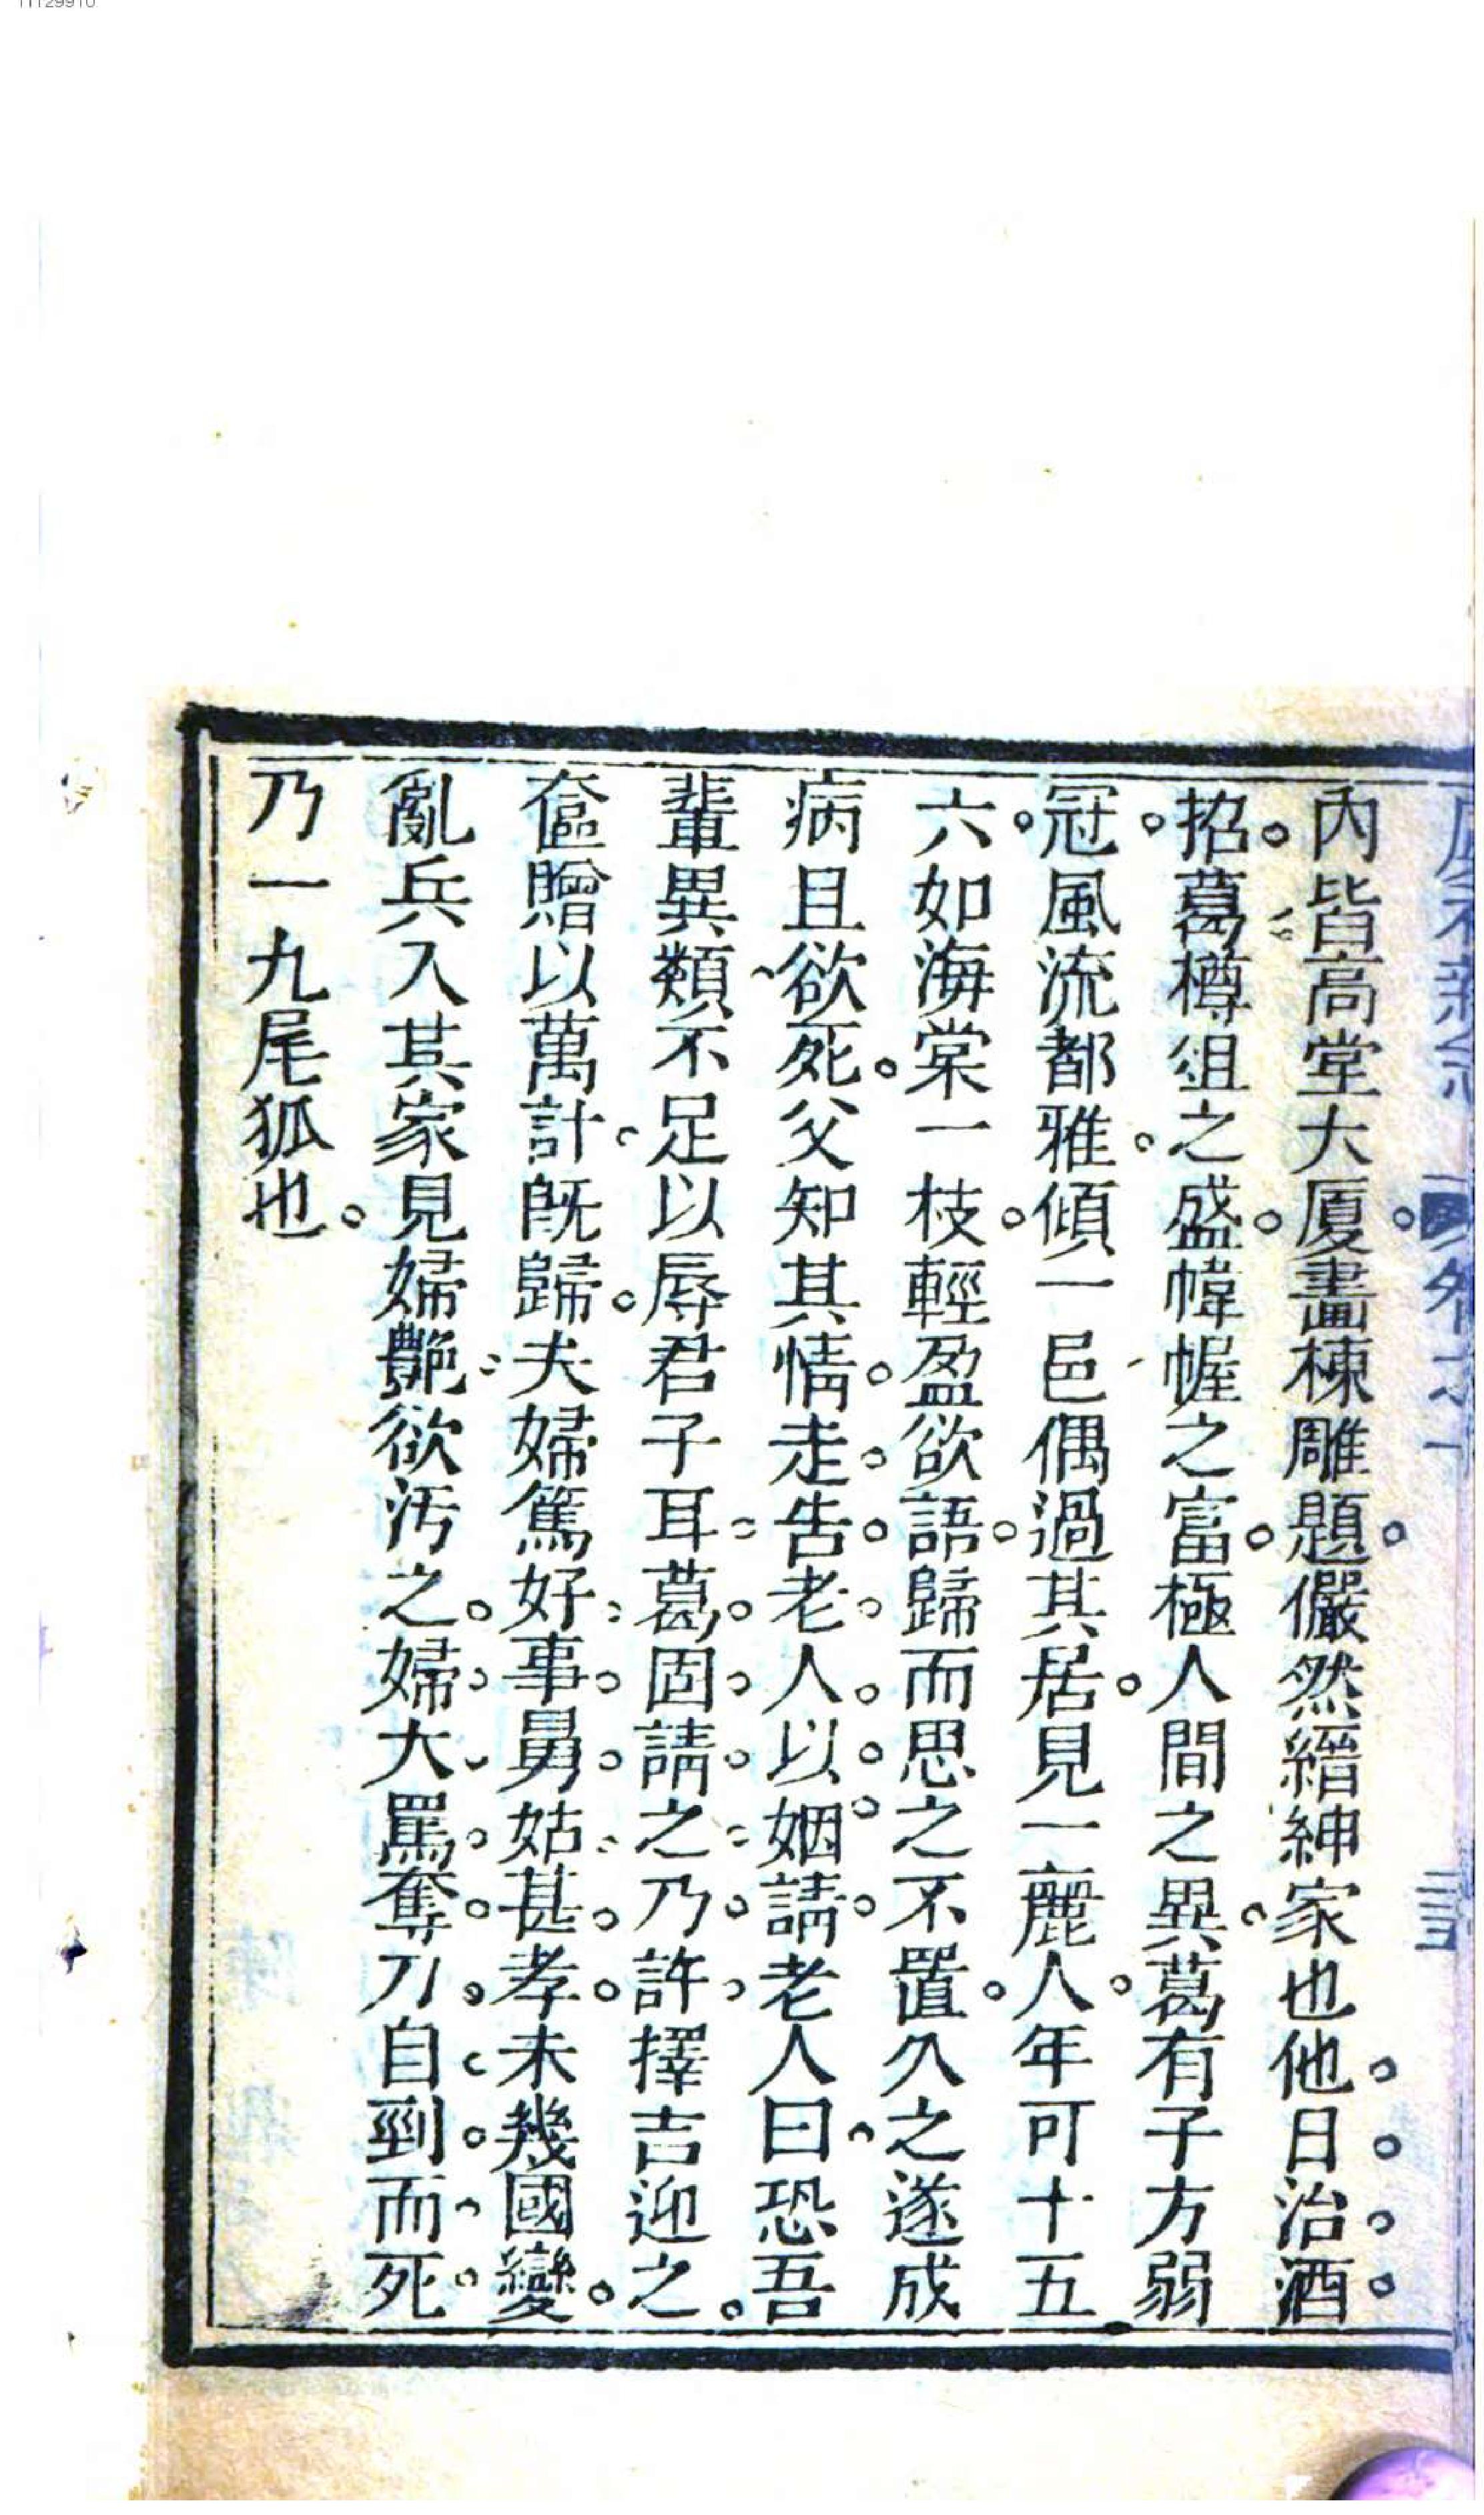 內皆高堂大厦畫棟雕題儼然縉紳家也他日治酒
招葛樽俎之盛幃幄之富極人間之異葛有子方弱
冠風流都雅傾一邑偶過其居見一麗人年可十五
六如海棠一枝輕盈欲語歸而思之不置久之遂成
病且欲死父知其情走告老人以姻請老人曰恐吾
輩異類不足以辱君子耳葛固請之乃許擇吉迎之
奩贈以萬計既歸夫婦篤好事舅姑甚孝未幾國變
亂兵入其家見婦艷欲汚之婦大罵奪刀自剄而死
乃一九尾狐也